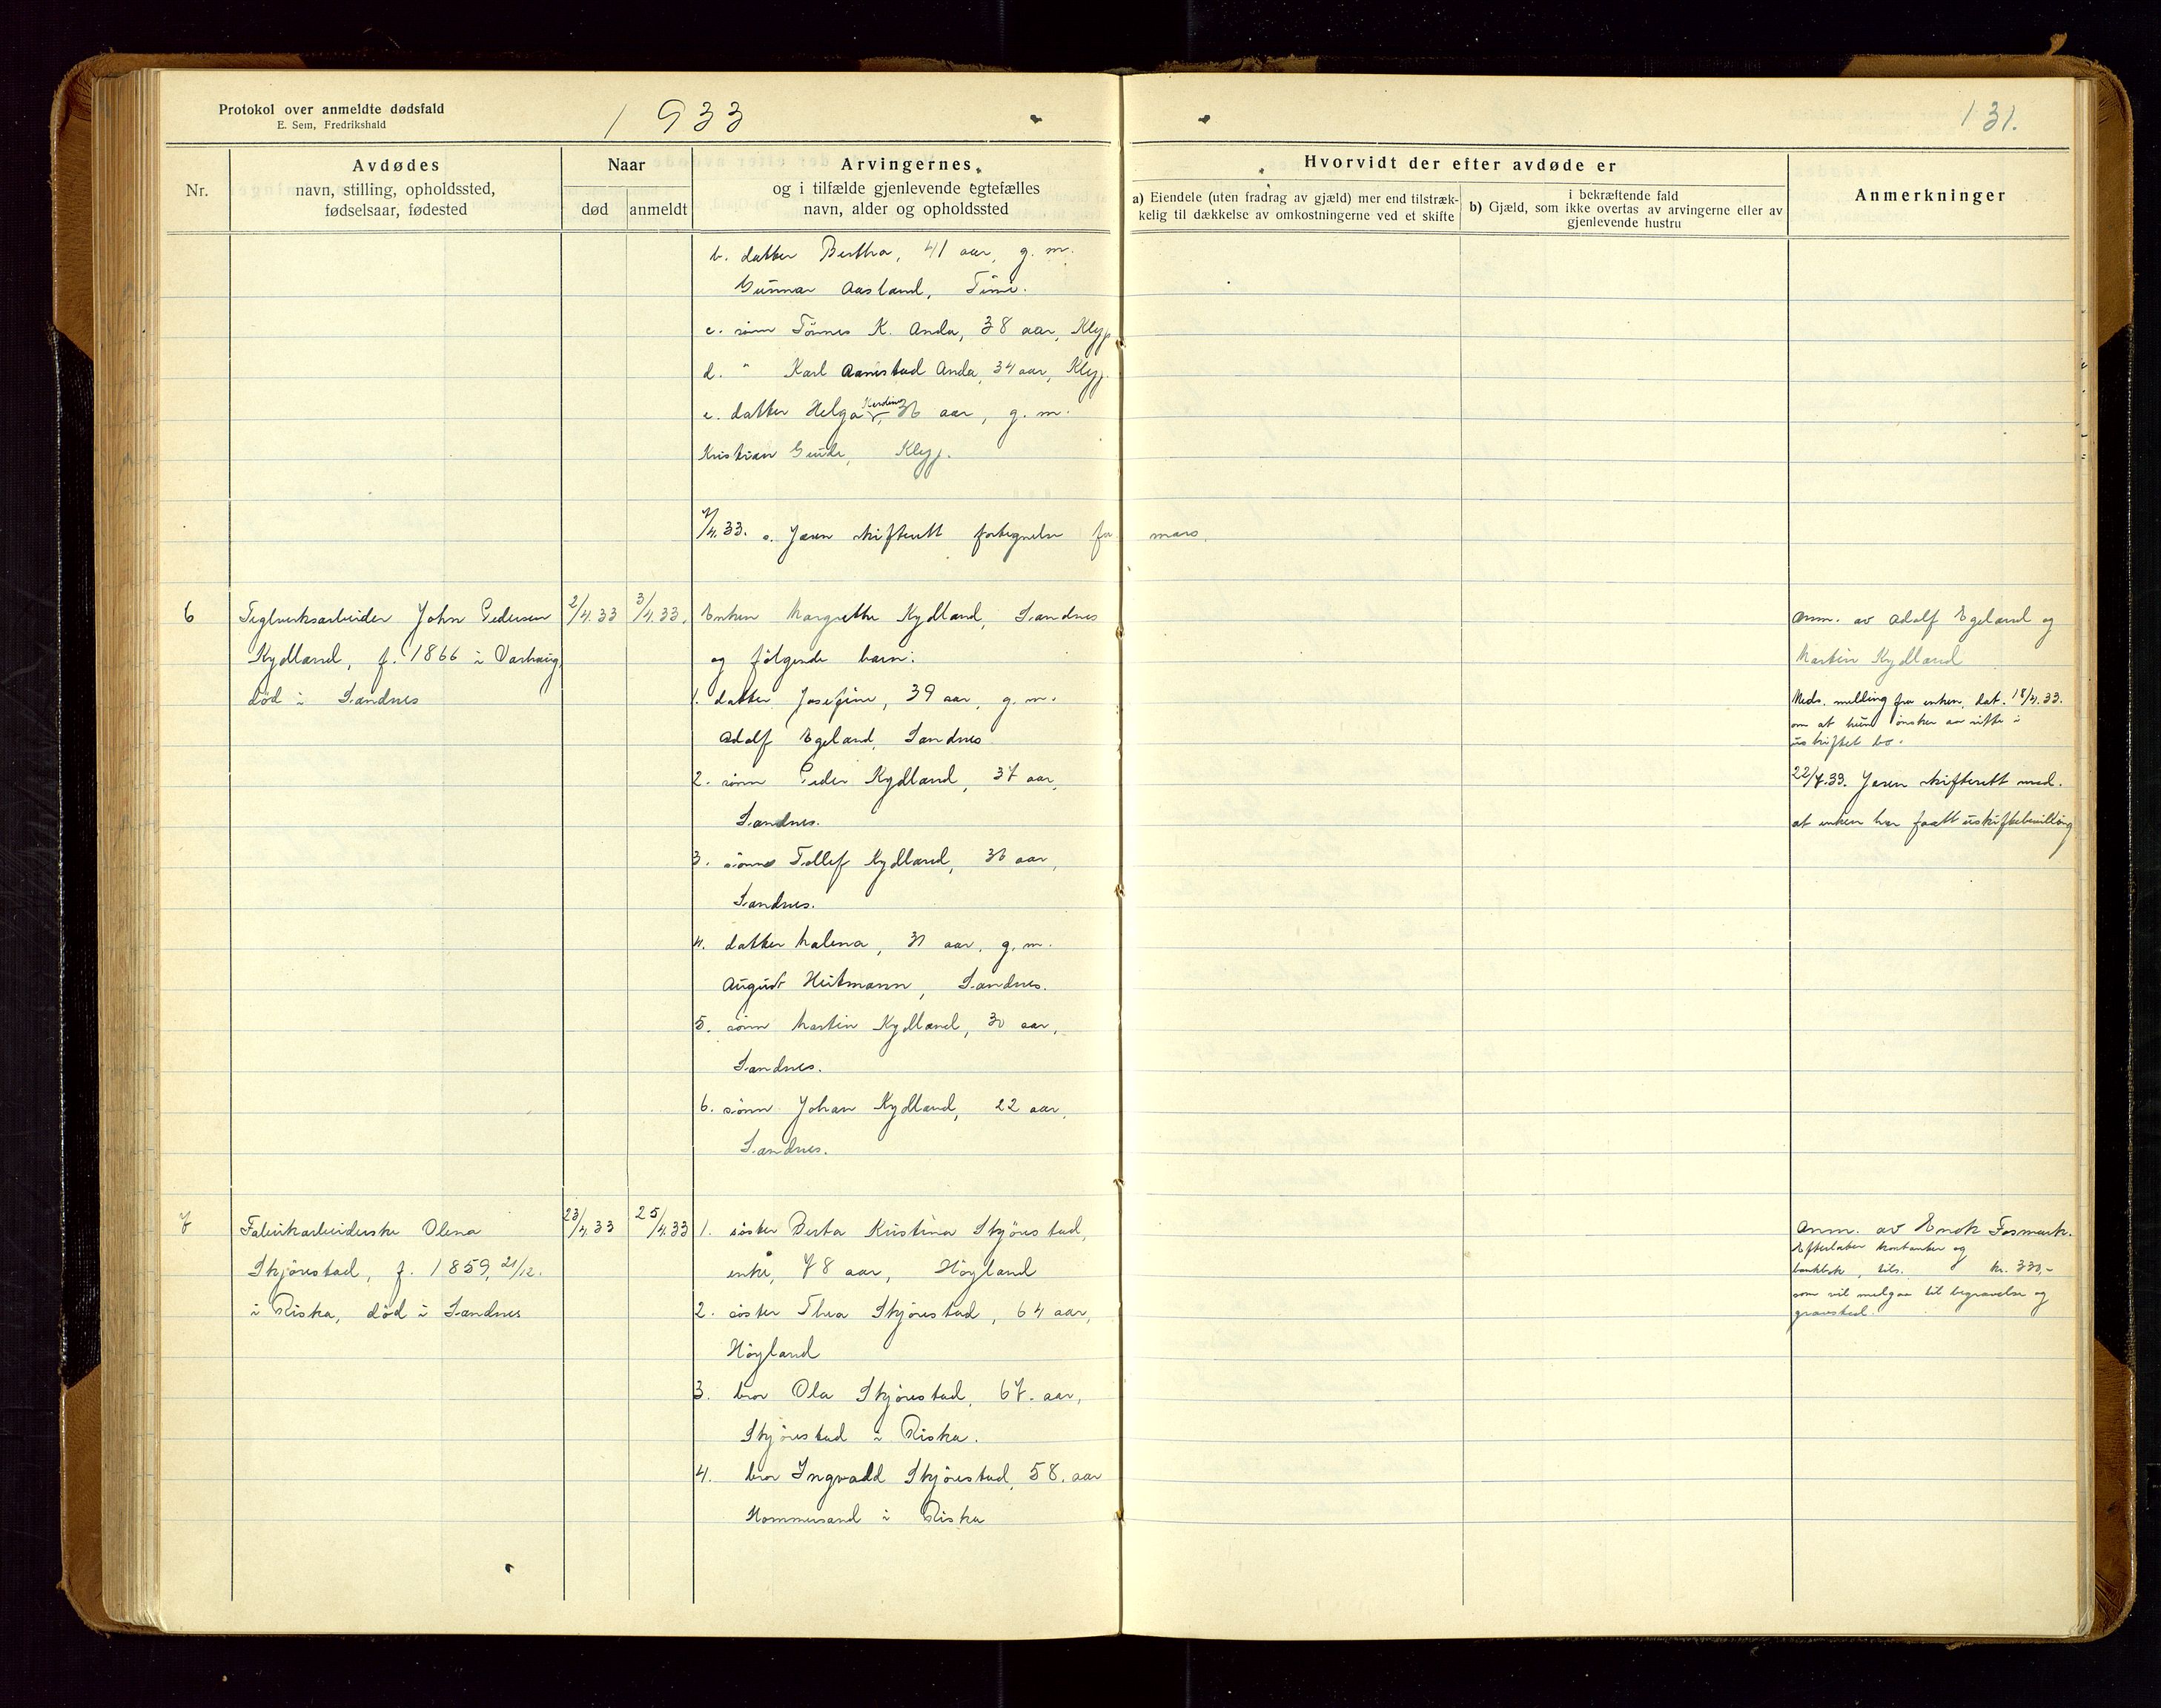 Protokol over anmeldte dødsfald
E. Sem, Fredrikshald
1933
131.
Nr.
Avdødes
navn, stilling, opholdssted,
fødselsaar, fødested
Naar
død
anmeldt
Arvingernes,
og i tilfælde gjenlevende egtefælles
navn, alder og opholdssted
Hvorvidt der efter avdøde er
a) Eiendele (uten fradrag av gjæld) mer end tilstræk-
kelig til dækkelse av omkostningerne ved et skifte
i bekræftende fald
b) Gjæld, som ikke overtas av arvingerne eller av
gjenlevende hustru
Anmerkninger
b. datter Bertha, 41 aar, g. m.
Gunnar Aasland, Time.
c. sønn Tönnes K. Anda, 38 aar, Klepp
d. " Karl Aanestad Anda, 34 aar, Klepp.
e. datter Helga 36 aar, g. m.
Kristian Klepp.
/4.33. s. Jæren skifterett fortegnelse for mars.
6
Teglverksarbeider John Pedersen
Kydland, f. 1866 i Varhaug,
død i Sandnes
2/4.33
3/4.33.
Enken Margrethe Kydland, Sandnes
og følgende barn:
1. datter Josefine, 39 aar, g. m.
Adolf Egeland, Sandnes
2. sønn Peder Kydland, 37 aar,
Sandnes.
3. sønn Tollef Kydland, 36 aar,
Sandnes.
4. datter Malena, 31 aar, g. m.
August Heitmann, Sandnes.
5. sønn Martin Kydland, 30 aar,
Sandnes.
6. sønn Johan Kydland, 22 aar,
Sandnes.
Anm. av Adolf Egeland og
Martin Kydland
Meds. melding fra enken, dat. 18/4.33.
om at hun ønsker aa sitte i
uskiftet bo.
22/7.33. Jæren skifterett med.
at enken har faatt uskiftebevilling
7
Fabrikarbeiderske Olena
Skjörestad, f. 1859, 21/12.
i Riska, død i Sandnes
23/4.33
25/4.33
1. söster Berta Kristina Skjörestad,
enke, 78 aar, Höyland
2. söster Thea Skjörestad, 64 aar,
Höyland
3. bror Ola Skjörestad, 67. aar,
Skjörestad i Riska.
4. bror Ingvald Skjörestad, 58. aar
Hommersand i Riska
Anm. av Enok Fosmark.
Efterlater kontanter og
bankbok, tils. kr. 330,-
som vil medgaa til begravelse og
gravsted.